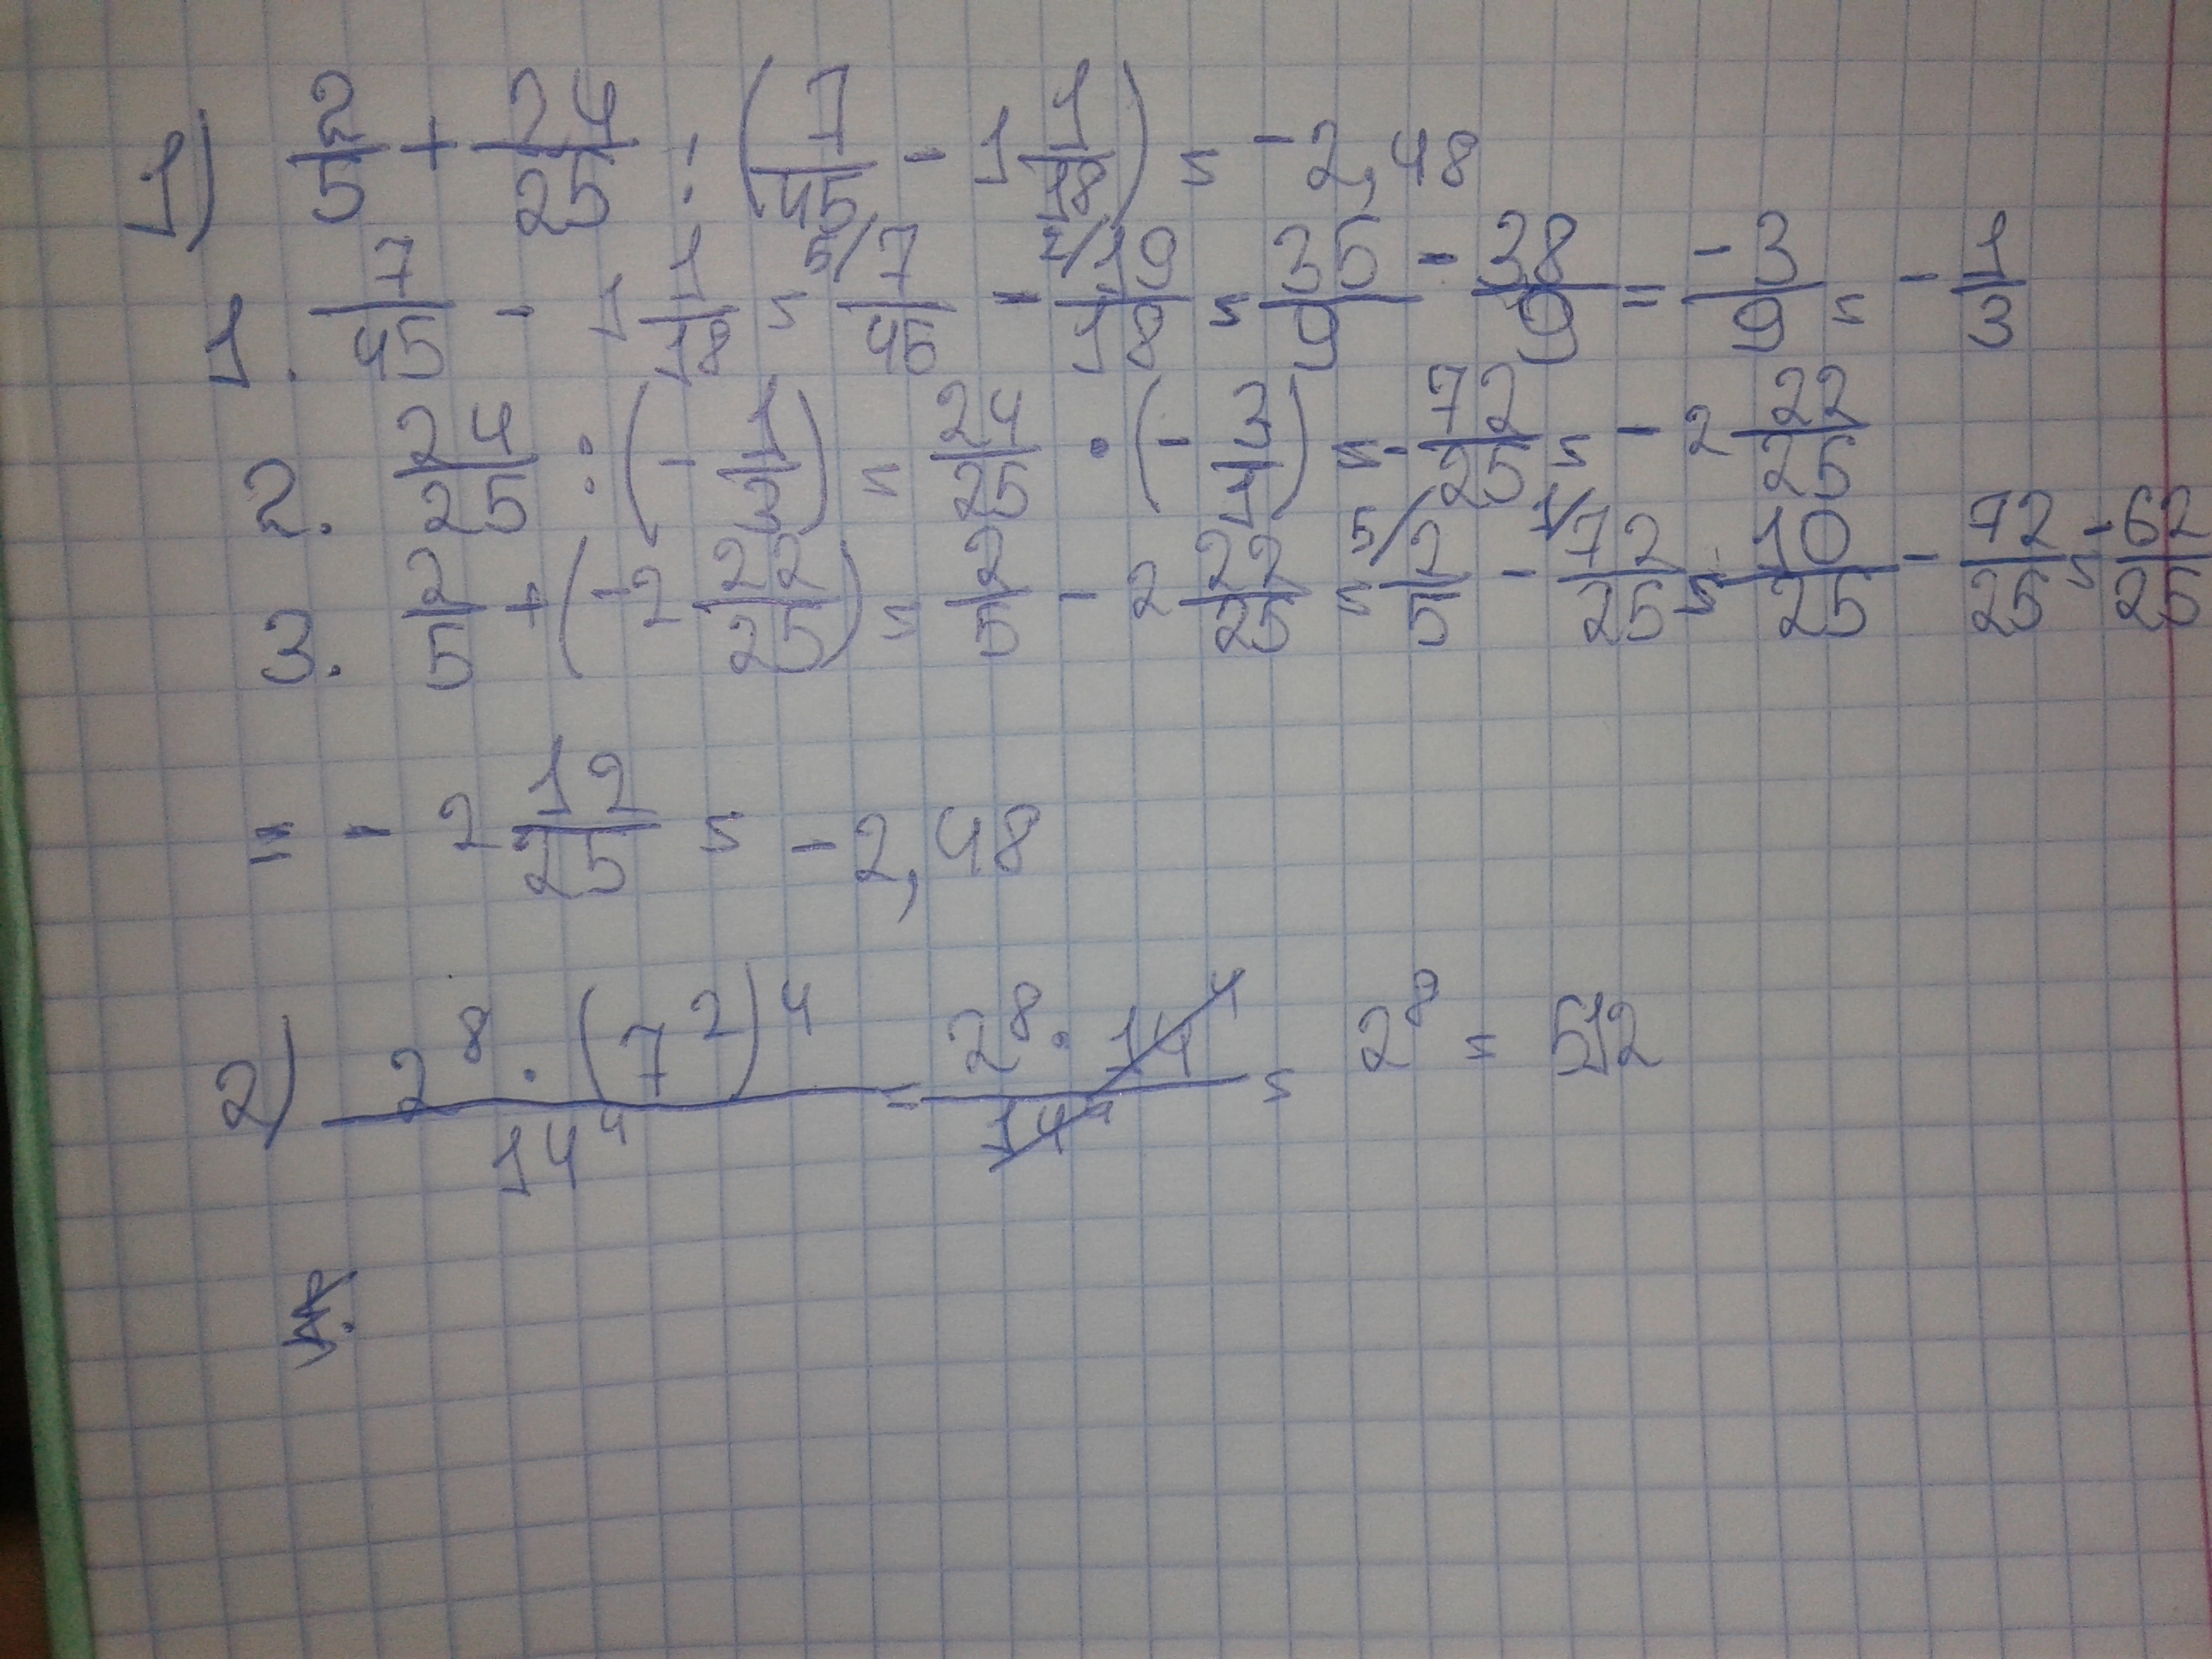 1) 2/5 + 24/25 : (7/45 - 1 1/18) = -2,48
1. 7/45 - 1 1/18 = 5/ 7/45 - 2/ 19/18 = 35/9 - 38/9 = -3/9 = -1/3
2. 24/25 : (-1/3) = 24/25 · (-3/1) = -72/25 = -2 22/25
3. 2/5 + (-2 22/25) = 2/5 - 2 22/25 = 5/ 2/5 - 1/ 72/25 = 10/25 - 72/25 = -62/25
= -2 12/25 = -2,48
2) 2⁸ · (7²)⁴ / 14⁴ = 2⁸ · 14⁴ / 14⁴ = 2⁸ = 512